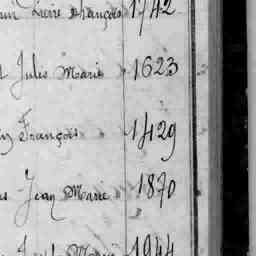 Pierre François 1742
Jules Marie 1623
François 1429
Jean Marie 1870
Marie 1944